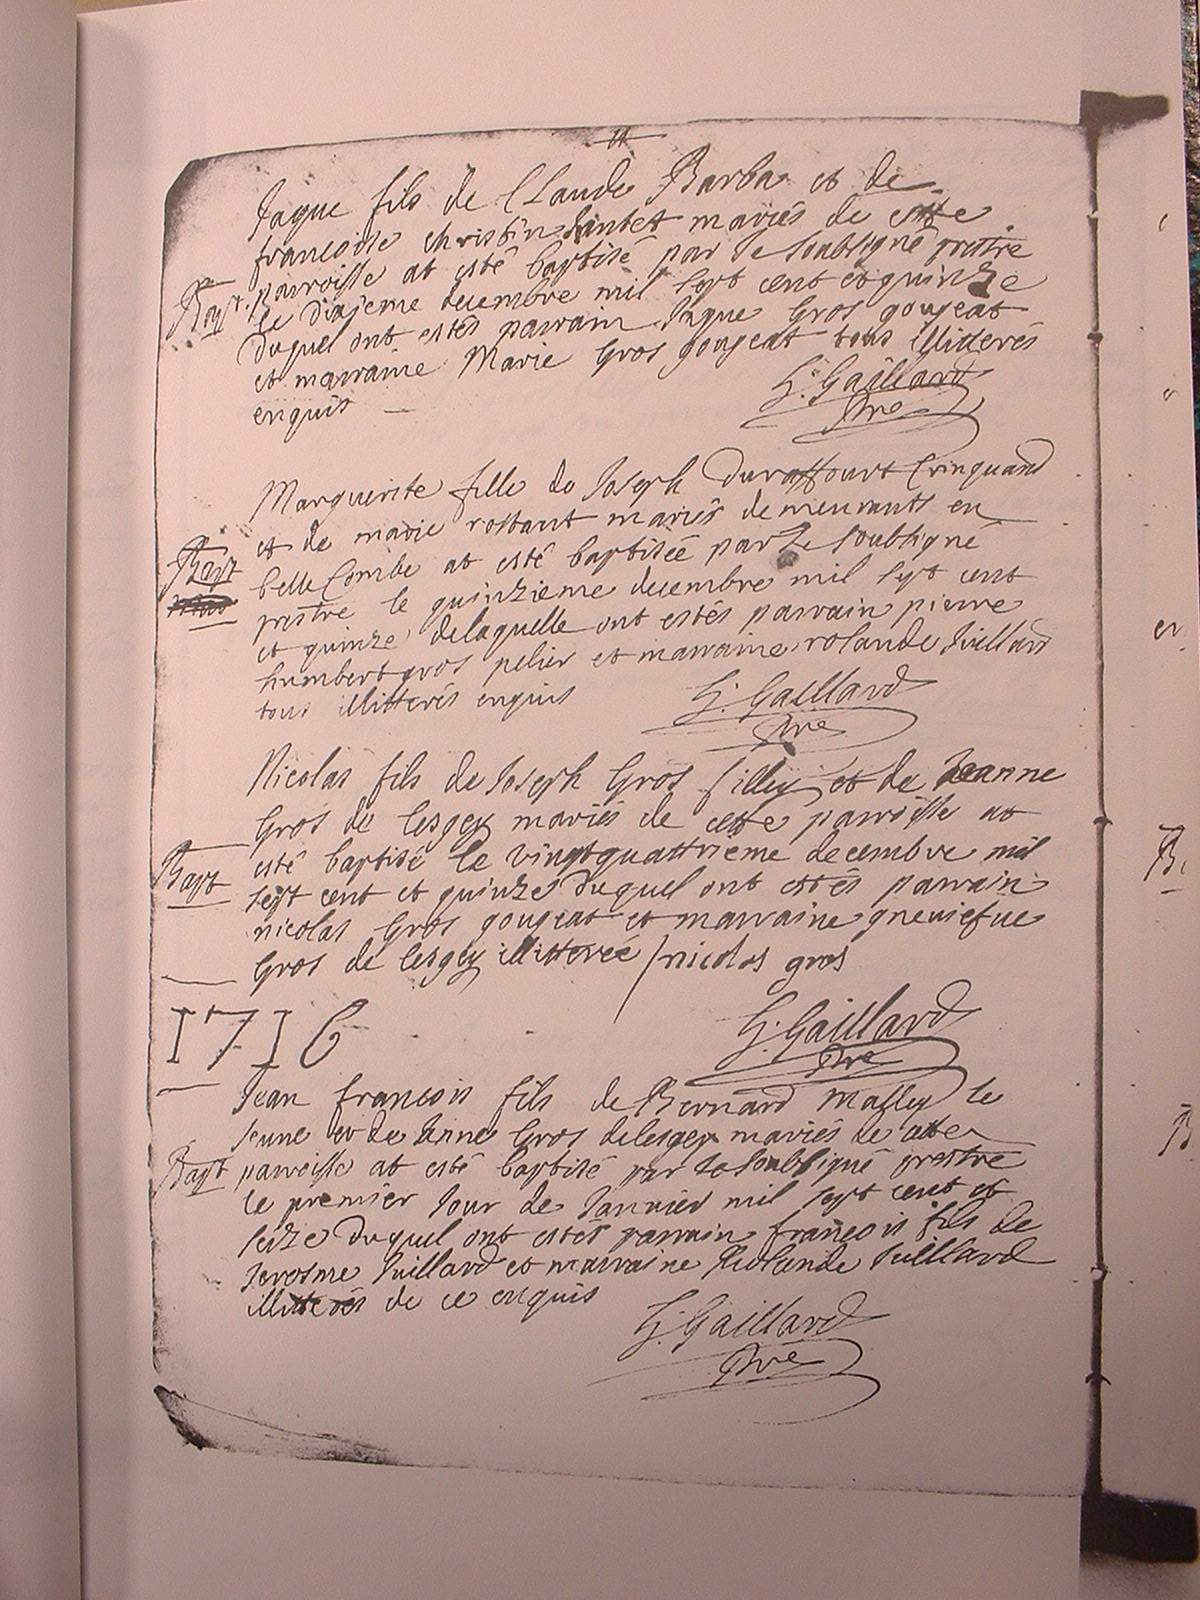 Jaque fils de Claude Barba et de
francoise christin mariés de cette
Bapt. parroisse at esté baptisé par le soubsigné prestre
le dixieme decembre mil sept cent et quinze
duquel ont estés parrain Jaque Gros gougeat
et marraine Marie Gros gougeat tous illitterés
enquis
G. Gaillard
pre
Marguerite fille de Joseph Duraffourt Crinquand
et de marie rostant mariés demeurants en
Bapt belle Combe at esté baptisée par le soubsigné
prestre le quinzieme decembre mil sept cent
et quinze delaquelle ont estés parrain pierre
humbert gros pelier et marraine rolande Juillard
tous illitterés enquis
G. Gaillard
pre
Nicolas fils de Joseph Gros filley et de Jeanne
Gros de lesgey mariés de cette parroisse at
Bapt esté baptisé le vingtquattrieme decembre mil
sept cent et quinze duquel ont estés parrain
nicolas Gros gougeat et marraine gneniefue
Gros de lesgey illitterée / nicolas gros
1716
G. Gaillard
pre
Jean francois fils de Bernard Malley le
jeune et de Anne Gros delesgey mariés de cette
Bapt parroisse at esté baptisé par le soubsigné prestre
le premier jour de Janvier mil sept cent et
seize duquel ont estés parrain francois fils de
Jerosme Juillard et marraine Rolande Juillard
illitterés de ce enquis
G. Gaillard
pre